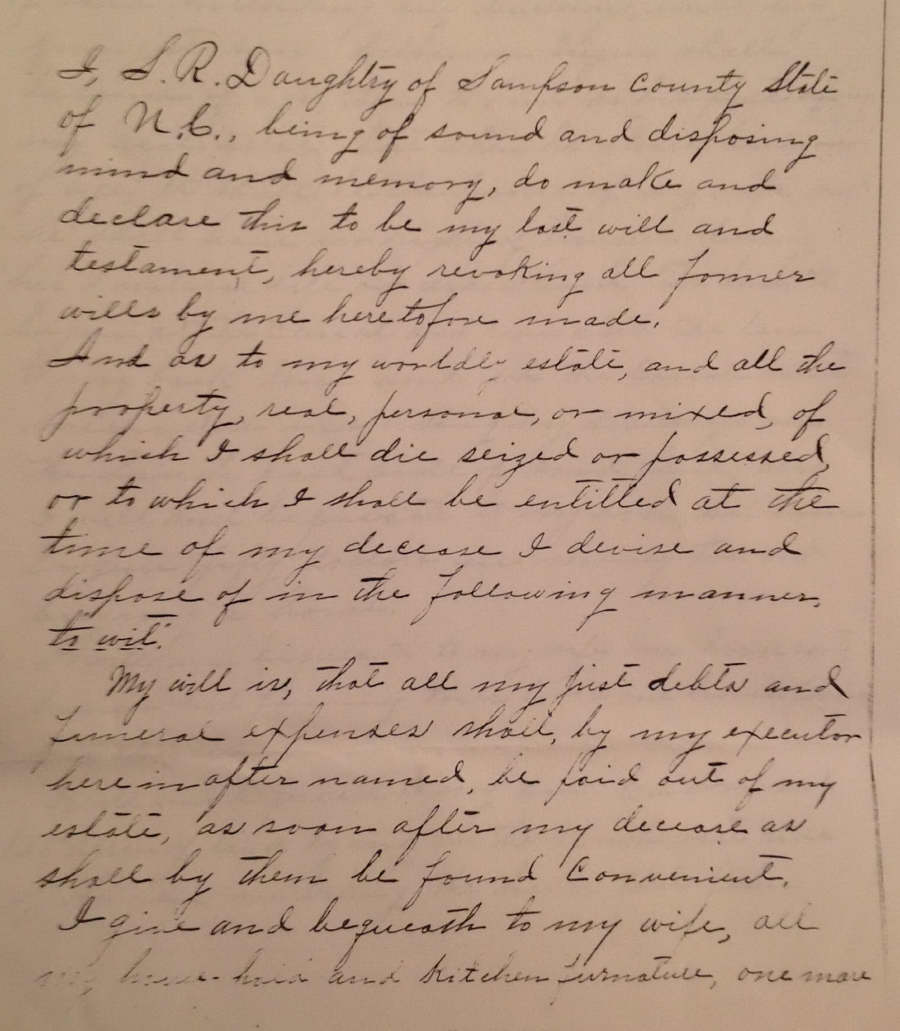 I, S. R. Daughtry of Sampson County State
of N.C., being of sound and disposing
mind and memory, do make and
declare this to be my last will and
testament, hereby revoking all former
wills by me heretofore made.
And as to my worldly estate, and all the
property, real, personal, or mixed, of
which I shall die seized or possessed,
or to which I shall be entitled at the
time of my decease I devise and
dispose of in the following manner,
to wit:
My will is, that all my just debts and
funeral expenses shall, by my executor
here in after named, be paid out of my
estate, as soon after my decease as
shall by them be found Convenient.
I give and bequeath to my wife, all
my house-hold and kitchen furnature, one mare